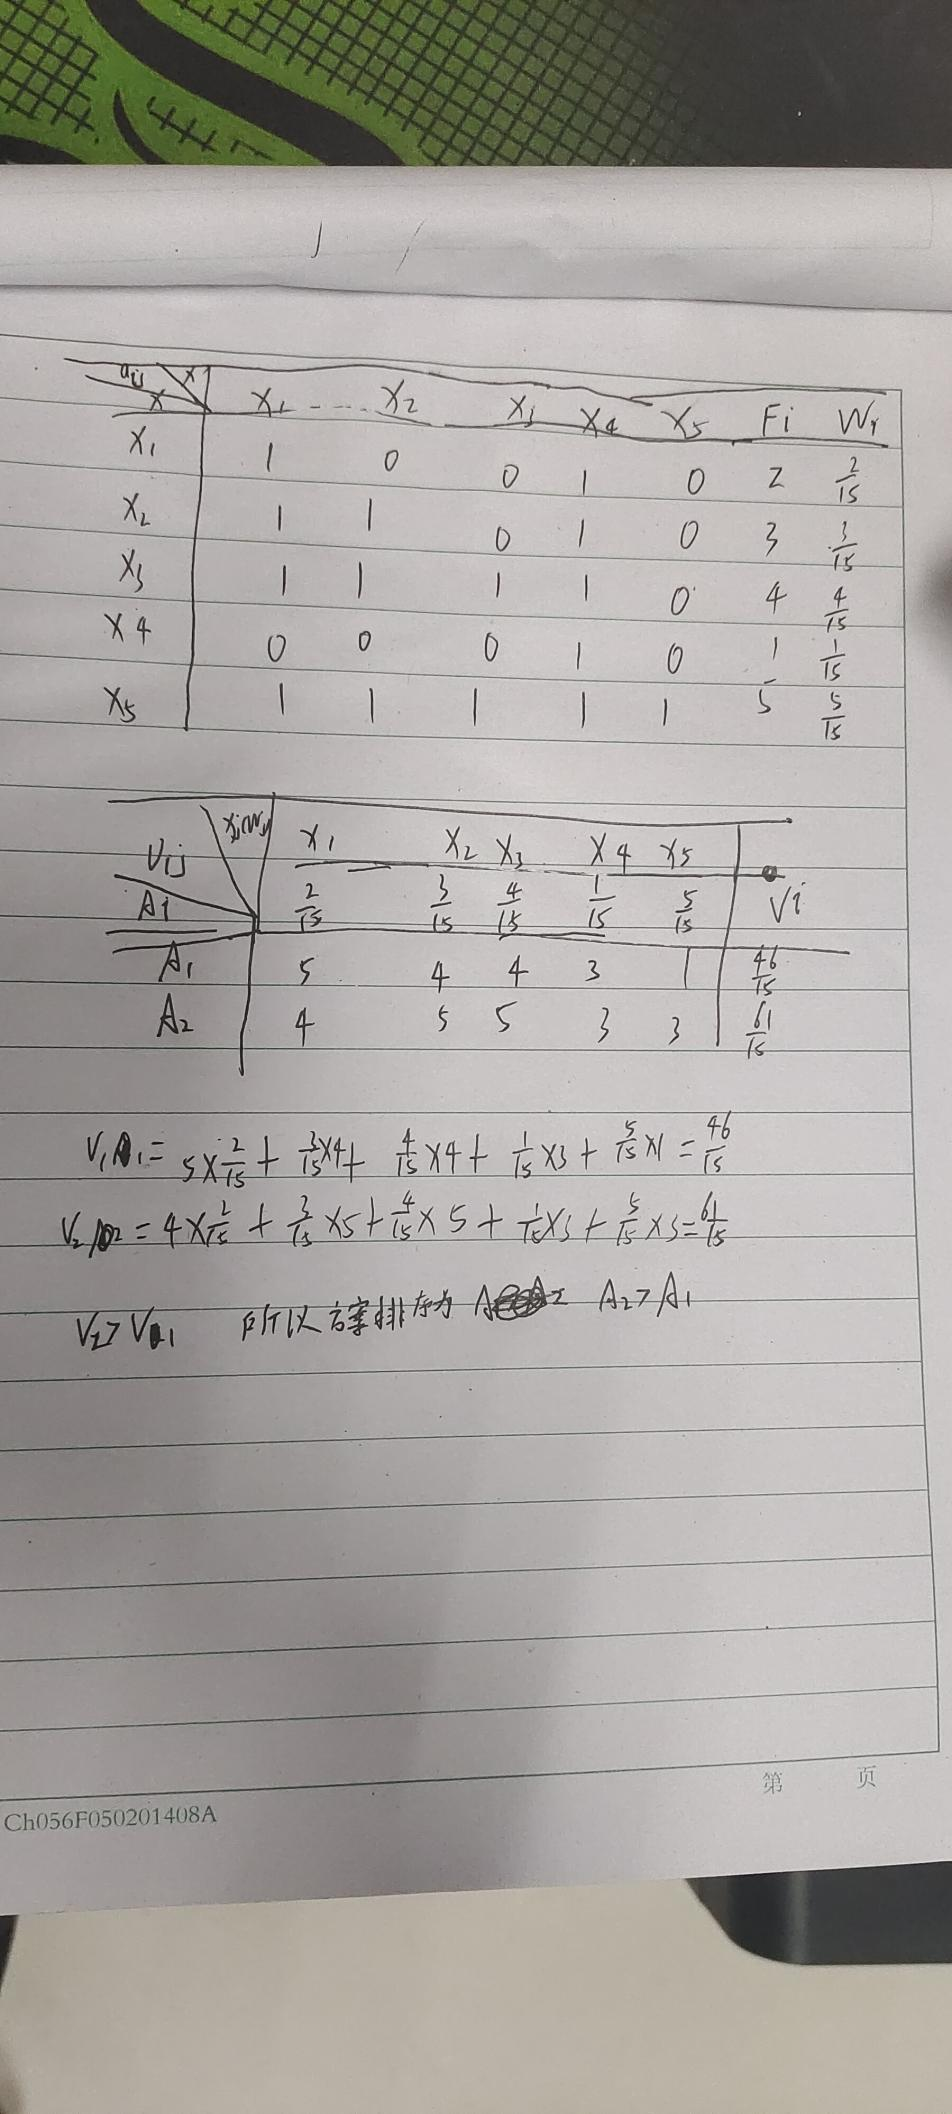 aij X
X X1 ---- X2 X3 X4 X5 Fi Wi
X1 1 0 0 1 0 2 2/15
X2 1 1 0 1 0 3 3/15
X3 1 1 1 1 0 4 4/15
X4 0 0 0 1 0 1 1/15
X5 1 1 1 1 1 5 5/15
Vij X1 X2 X3 X4 X5
Ai 2/15 3/15 4/15 1/15 5/15 Vi
A1 5 4 4 3 1 46/15
A2 4 5 5 3 3 61/15
= 5×2/15 + 3/15×4+ 4/15×4+ 1/15×3+ 5/15×1=46/15
= 4×2/15 + 3/15×5+4/15×5+ 1/15×3+ 5/15×3=61/15
V2>V1 所以方案排序为 A2>A1
第 页
Ch056F050201408A